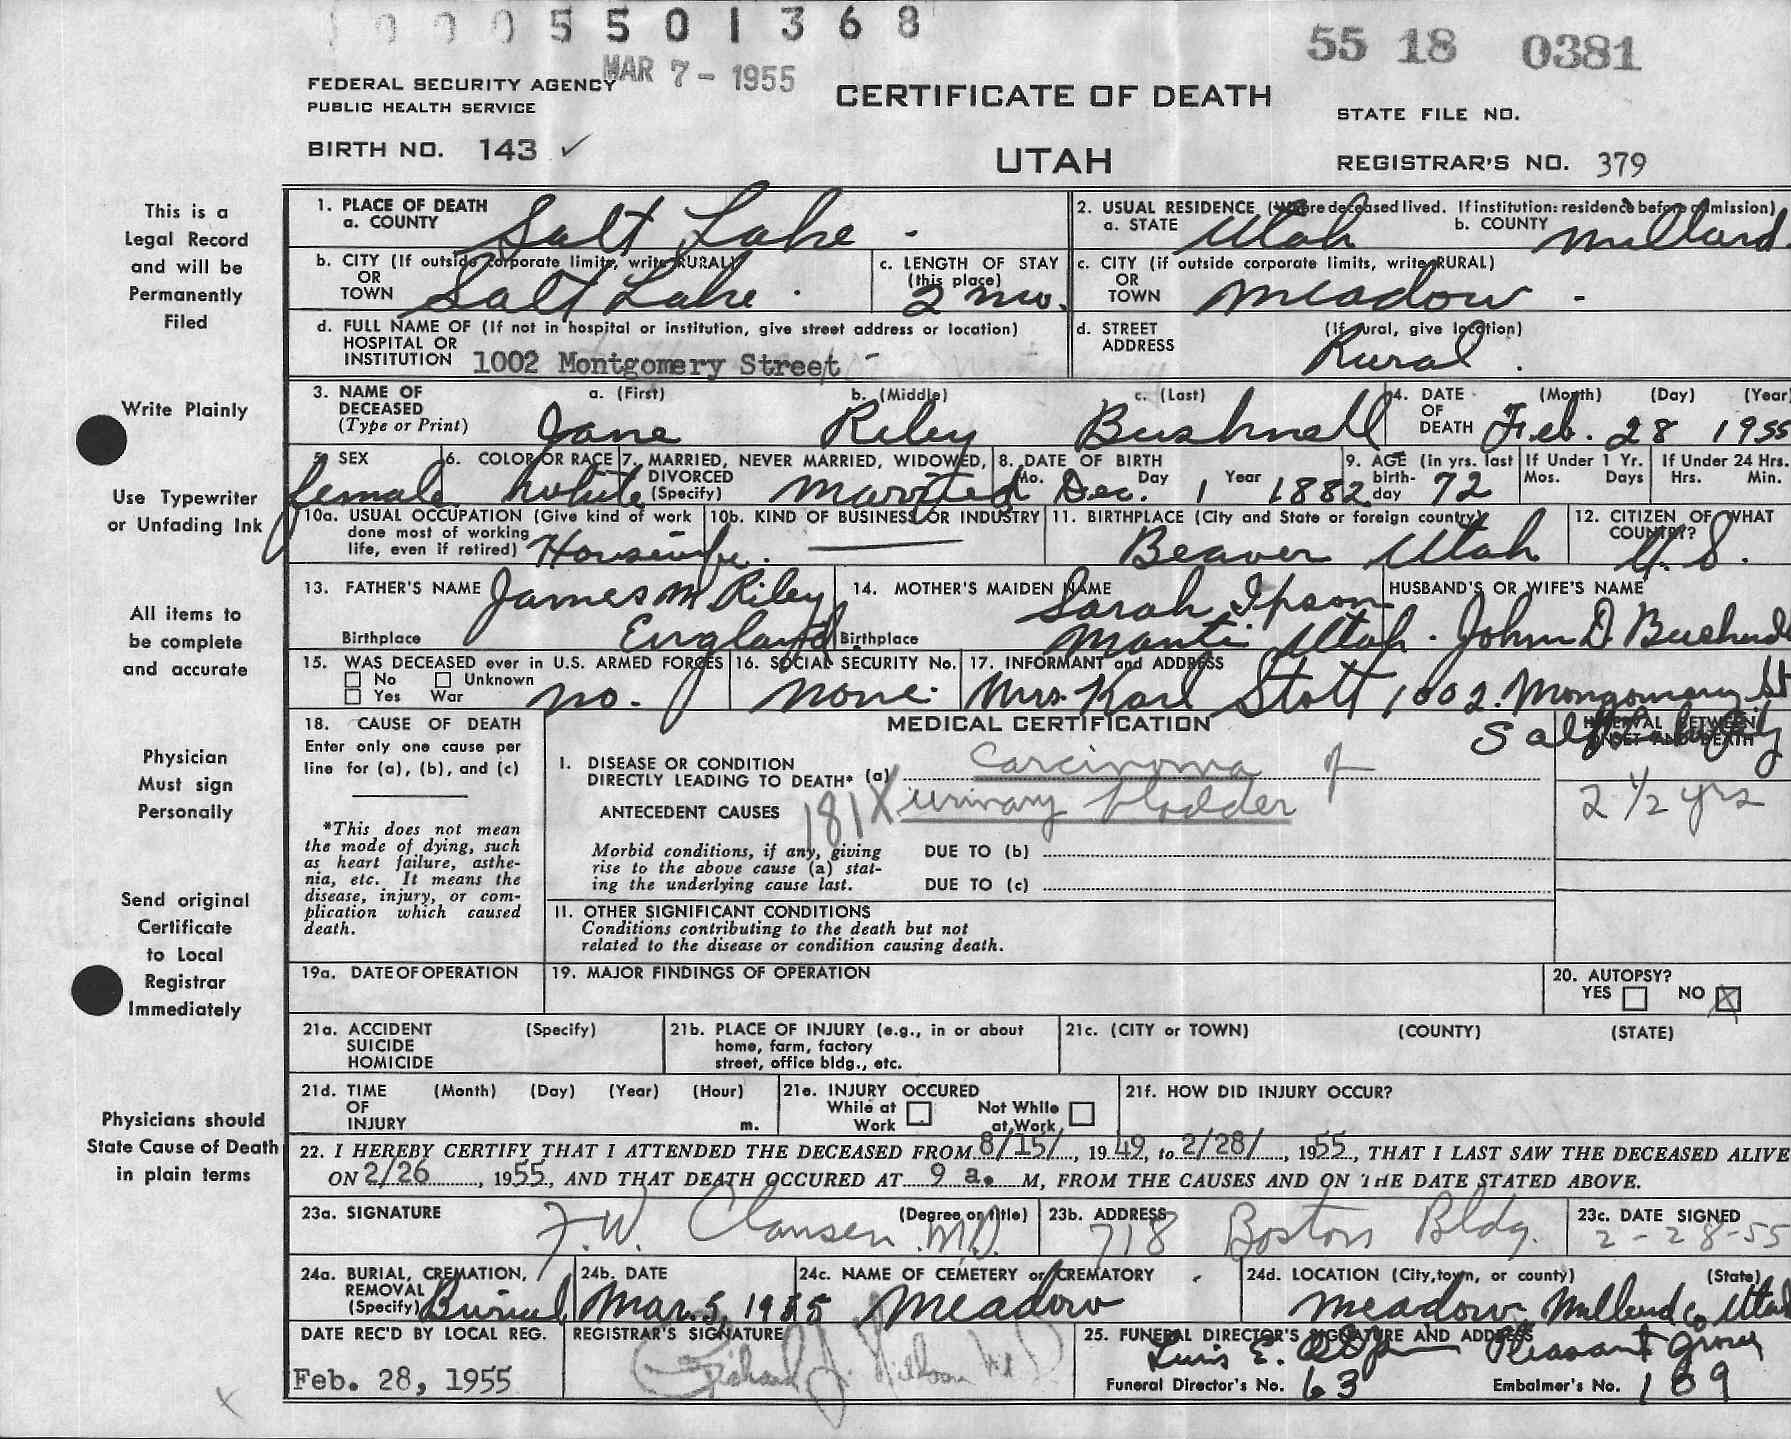 0005501368
55 18 0381
MAR 7 - 1955
FEDERAL SECURITY AGENCY
PUBLIC HEALTH SERVICE
CERTIFICATE OF DEATH
STATE FILE NO.
BIRTH NO. 143 ✓
UTAH
REGISTRAR'S NO. 379
This is a
Legal Record
and will be
Permanently
Filed
Write Plainly
Use Typewriter
or Unfading Ink
All items to
be complete
and accurate
Physician
Must sign
Personally
Send original
Certificate
to Local
Registrar
Immediately
Physicians should
State Cause of Death
in plain terms
1. PLACE OF DEATH
a. COUNTY Salt Lake -
2. USUAL RESIDENCE (Where deceased lived. If institution: residence before admission)
a. STATE Utah b. COUNTY Millard
b. CITY (If outside corporate limits, write RURAL)
OR
TOWN Salt Lake .
c. LENGTH OF STAY
(this place)
2 mo.
c. CITY (if outside corporate limits, write RURAL)
OR
TOWN Meadow -
d. FULL NAME OF (If not in hospital or institution, give street address or location)
HOSPITAL OR
INSTITUTION 1002 Montgomery Street -
d. STREET (If rural, give location)
ADDRESS Rural .
3. NAME OF a. (First) b. (Middle) c. (Last)
DECEASED
(Type or Print) Jane Riley Bushnell
4. DATE (Month) (Day) (Year)
OF
DEATH Feb. 28 1955
5. SEX
female
6. COLOR OR RACE
white
7. MARRIED, NEVER MARRIED, WIDOWED,
DIVORCED
(Specify) Married
8. DATE OF BIRTH
Mo. Dec. Day 1 Year 1882
9. AGE (in yrs. last
birth-
day 72
If Under 1 Yr.
Mos. Days
If Under 24 Hrs.
Hrs. Min.
10a. USUAL OCCUPATION (Give kind of work
done most of working
life, even if retired) Housewife.
10b. KIND OF BUSINESS OR INDUSTRY
11. BIRTHPLACE (City and State or foreign country)
Beaver Utah
12. CITIZEN OF WHAT
COUNTRY?
U.S.
13. FATHER'S NAME James M Riley
Birthplace England
14. MOTHER'S MAIDEN NAME
Sarah Ipson
Birthplace Manti Utah.
HUSBAND'S OR WIFE'S NAME
John D Bushnell
15. WAS DECEASED ever in U.S. ARMED FORCES
No Unknown
Yes War no.
16. SOCIAL SECURITY No.
none.
17. INFORMANT and ADDRESS
Mrs. Karl Stott 1002. Montgomery St
Salt Lake City
18. CAUSE OF DEATH
Enter only one cause per
line for (a), (b), and (c)
*This does not mean
the mode of dying, such
as heart failure, asthe-
nia, etc. It means the
disease, injury, or com-
plication which caused
death.
MEDICAL CERTIFICATION
INTERVAL BETWEEN
ONSET AND DEATH
I. DISEASE OR CONDITION
DIRECTLY LEADING TO DEATH* (a) Carcinoma of
ANTECEDENT CAUSES 181X urinary bladder
2 1/2 yrs
Morbid conditions, if any, giving
rise to the above cause (a) stat-
ing the underlying cause last.
DUE TO (b)
DUE TO (c)
II. OTHER SIGNIFICANT CONDITIONS
Conditions contributing to the death but not
related to the disease or condition causing death.
19a. DATE OF OPERATION
19. MAJOR FINDINGS OF OPERATION
20. AUTOPSY?
YES NO X
21a. ACCIDENT (Specify)
SUICIDE
HOMICIDE
21b. PLACE OF INJURY (e.g., in or about
home, farm, factory
street, office bldg., etc.
21c. (CITY or TOWN) (COUNTY) (STATE)
21d. TIME (Month) (Day) (Year) (Hour)
OF
INJURY m.
21e. INJURY OCCURED
While at Work
Not While at Work
21f. HOW DID INJURY OCCUR?
22. I HEREBY CERTIFY THAT I ATTENDED THE DECEASED FROM 8/15/, 1949, to 2/28/, 1955, THAT I LAST SAW THE DECEASED ALIVE
ON 2/26, 1955, AND THAT DEATH OCCURED AT 9 a. M, FROM THE CAUSES AND ON THE DATE STATED ABOVE.
23a. SIGNATURE (Degree or title)
F. W. Clausen M.D.
23b. ADDRESS
718 Boston Bldg.
23c. DATE SIGNED
2-28-55
24a. BURIAL, CREMATION,
REMOVAL
(Specify) Burial
24b. DATE
Mar. 5, 1955
24c. NAME OF CEMETERY or CREMATORY
Meadow
24d. LOCATION (City, town, or county) (State)
Meadow Millard Co Utah
DATE REC'D BY LOCAL REG.
Feb. 28, 1955
REGISTRAR'S SIGNATURE
25. FUNERAL DIRECTOR'S SIGNATURE AND ADDRESS
E. Pleasant Grove
Funeral Director's No. 63 Embalmer's No. 189
x